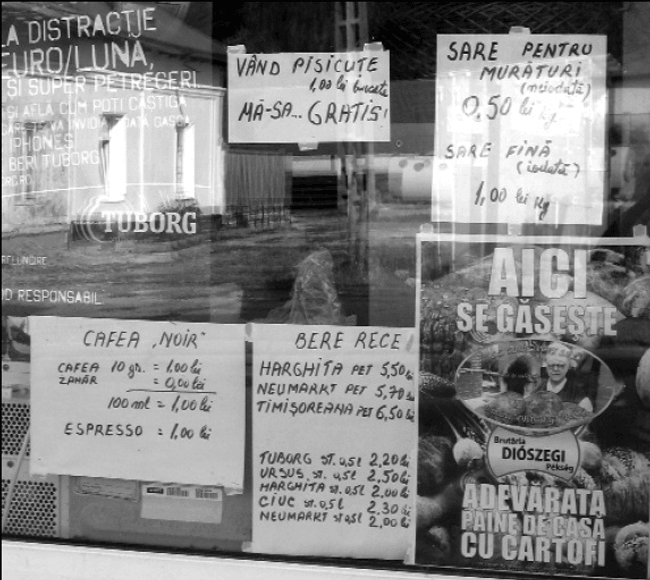 A DISTRACȚIE
EURO/LUNĂ,
ȘI SUPER PETRECERI.
ȘI AFLĂ CUM POȚI CÂȘTIGA
PHONES
BERI TUBORG
TUBORG
RESPONSABIL
VÂND PISICUTE
1,00 lei bucata
MĂ-SA... GRATIS!
SARE PENTRU
MURĂTURI
(neiodată)
0,50 lei kg
SARE FINĂ
(iodată)
1,00 lei kg
CAFEA „NOIR"
CAFEA 10 gr. = 1,00 lei
ZAHĂR = 0,00 lei
100 ml = 1,00 lei
ESPRESSO = 1,00 lei
BERE RECE
HARGHITA PET 5,50 lei
NEUMARKT PET 5,70 lei
TIMIȘOREANA PET 6,50 lei
TUBORG st. 0,5l 2,20 lei
URSUS st. 0,5l 2,50 lei
HARGHITA st. 0,5l 2,00 lei
CIUC st. 0,5l 2,30 lei
NEUMARKT st 0,5l 2,00 lei
AICI
SE GĂSEȘTE
Brutăria
DIÓSZEGI
Pékség
ADEVĂRATA
PÂINE DE CASĂ
CU CARTOFI